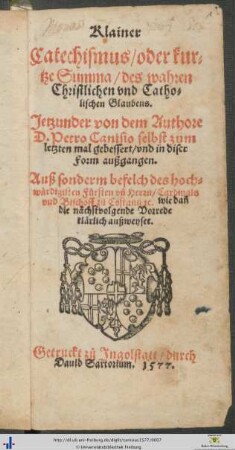 Klainer
Catechismus / oder kur-
tze Summa / des wahren
Christlichen vnd Catho-
lischen Glaubens.
Jetzunder von dem Authore
D. Petro Canisio selbst zum
letzten mal gebessert / vnd in diser
Form außgangen.
Auß sonderm befelch des hoch-
würdigsten Fürsten vñ Herrn / Cardinals
vnd Bischoff zů Costantz ⁊c. wie dañ
die nächstuolgende Vorrede
klärlich außweyset.
Getruckt zů Jngolstatt / durch
Dauid Sartorium. 1577.
© Universitätsbibliothek Freiburg